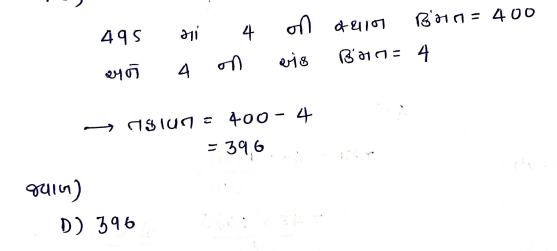 495 માં 4 ની સ્થાન કિંમત = 400
અને 4 ની અંક કિંમત = 4
→ તફાવત = 400 - 4
= 396
જવાબ)
D) 396